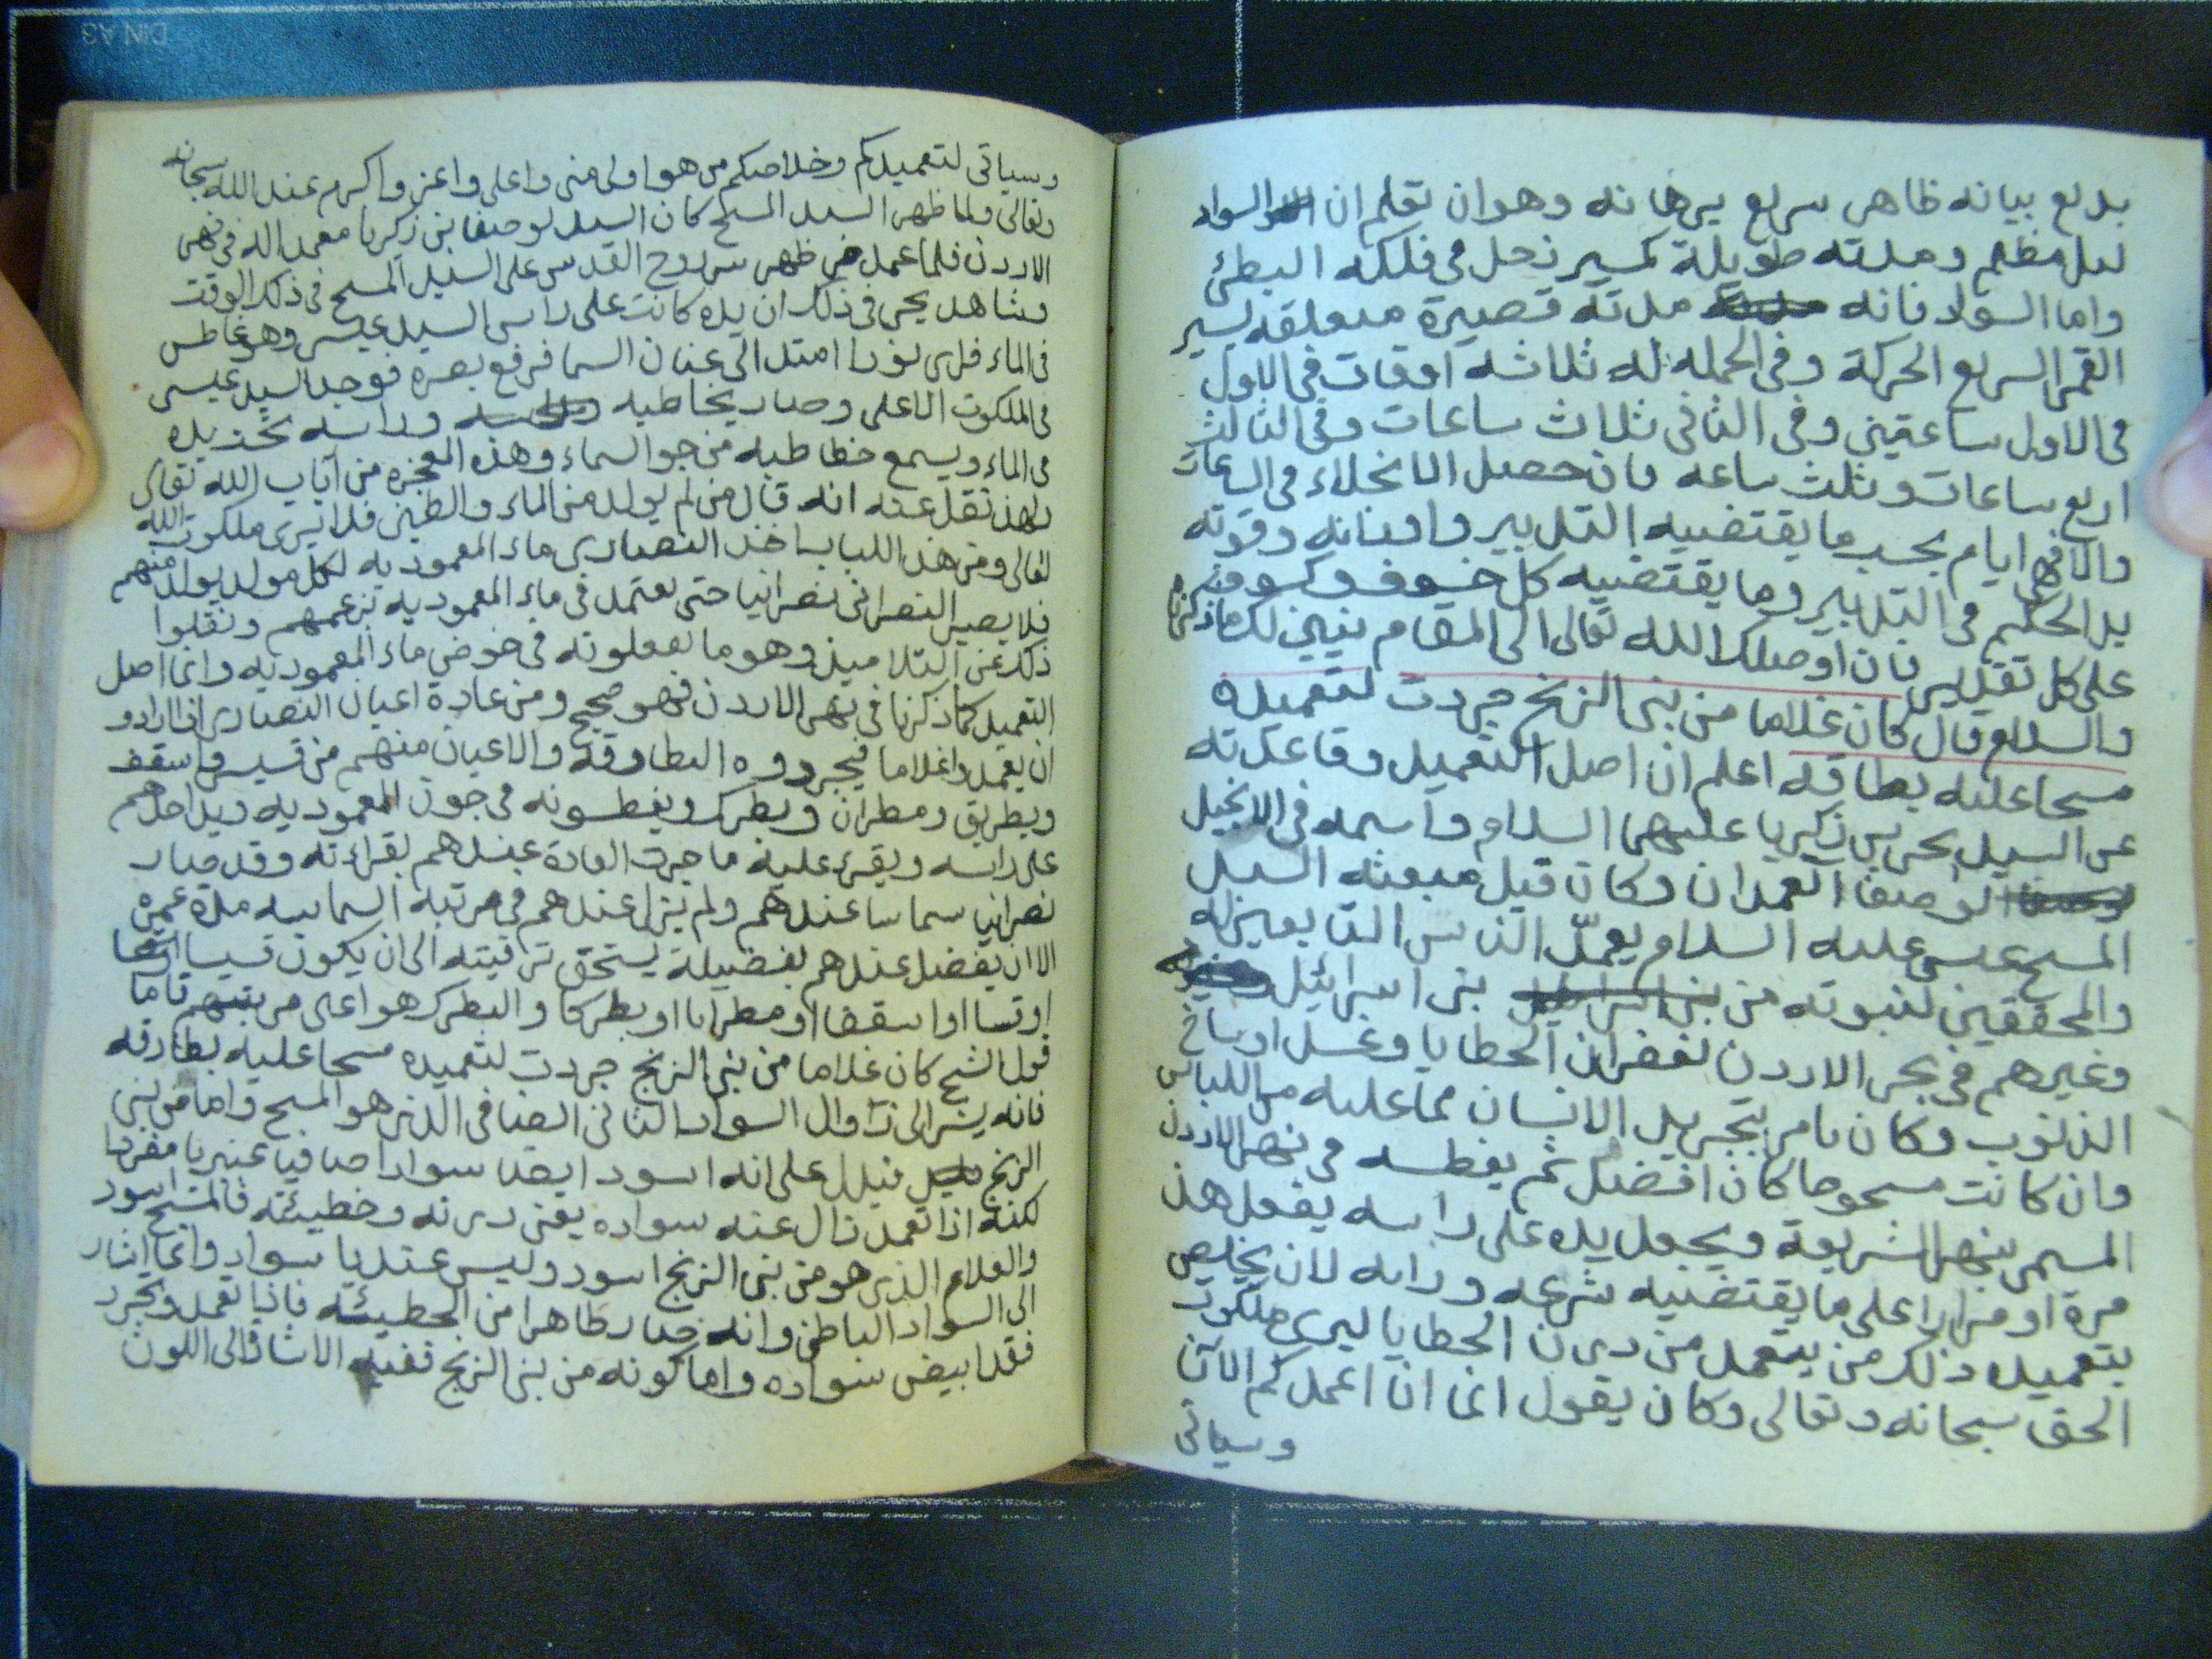 بديع بيانه ظاهر سريع برهانه وهو ان تعلم ان السواد
ليل مظلم ومدته طويلة كمسير زحل في فلكه البطئ
واما السولا فانه مدته قصيرة متعلقه بسير
القمر السريع الحركة وفي الجمله له ثلاثه اوقات في الاول
في الاول ساعتين وفي الثاني ثلاث ساعات وفي الثالث
اربع ساعات وثلث ساعه فان حصل الانحلاء في الساعات
والا فهي ايام بحسب ما يقتضيه التدبير واوزانه وقوته
يد الحكيم في التدبير وما يقتضيه كل خسوف وكسوف
على كل تقدير فان اوصلك الله تعالى الى المقام تبين لك ما ذكرناه
والسلام قال كان غلاما من بني الزنج جردت لتعميده
مسحا عليه بطاقه اعلم ان اصل التعميد وقاعدته
عن السيد يحيى بن زكريا عليهما السلام واسمه في الانجيل
يوصفا المعمدان وكان قبل مبعثه السيد
المسيح عيسى عليه السلام يعمد الناس التابعين له
والمحققين لنبوته من بني اسرائيل
وغيرهم في بحر الاردن لغفران الخطايا وغسل اوساخ
الذنوب وكان يامر بتجريد الانسان مما عليه من اللباس
وان كانت مسحوحا كان افضل ثم يغطسه في نهر الاردن
المسمى بنهر الشريعة ويجعل يده على راسه يفعل هذا
مرة او مرارا على ما يقتضيه شرعه ورايه لان يخلص
بتعميده ذلك من يتعمد من درن الخطايا ليرى ملكوت
الحق سبحانه وتعالى وكان يقول انما انا اعمدكم الآن
وسياتي
وسياتي لتعميدكم وخلاصكم من هو اولى مني واعلى واعز واكرم عند الله سبحانه
وتعالى ولما ظهر السيد المسيح كان السيد يوصفا بن زكريا معمدا له في نهر
الاردن فلما عمده ظهر سر روح القدس على السيد المسيح في ذلك الوقت
وشاهد يحيى في ذلك ان يده كانت على راس السيد عيسى وهو غاطس
في الماء فراى نورا امتد الى عنان السما فرفع بصره فوجد السيد عيسى
في الملكوت الاعلى وصار يخاطبه وراسه تحت يده
في الماء ويسمع خطابه من جو السماء وهذه المعجزه من آيات الله تعالى
ولهذ نقل عنه انه قال من لم يولد من الماء والطين فلا يرى ملكوت الله
تعالى ومن هذ الباب ياخذ النصارى ماء المعموديه لكل مولد يولد منهم
فلا يصير النصراني نصرانيا حتى يعتمد في ماء المعموديه بزعمهم ونقلوا
ذلك عن التلاميذ وهو ما يعملونه في حوض ماء المعموديه وانما اصل
التعميد كما ذكرنا في نهر الاردن فهو صحيح ومن عادة اعيان النصارى اذا ارادو
ان يعمدوا غلاما فيجردوه البطارقه والاعيان منهم من قسيس واسقف
وبطريق ومطران وبطرك ويغطسونه في جرن المعموديه ويد احدهم
على راسه ويقرئ عليه ما جرت العادة عندهم بقراءته وقد صار
نصرانيا سماسا عندهم ولم يزل عندهم في مرتبة السماسيه مدة عمره
الا ان يفضل عندهم بفضيلة يستحق ترقيته الى ان يكون قسيسا
او قسا او اسقفا او مطرانا او بطركا والبطرك هو اعلى مرتبتهم فاما
قول الشيخ كان غلاما من بني الزنج جردت لتعميده مسحا عليه بطارقه
فانه يشير الى زوال السواد الثاني الصافي الذي هو المسيح واما من بني
الزنج فيدل على انه اسود ايضا سوادا صافيا عنبريا مفرطا
لكنه اذا تعمد زال عنه سواده يعني درنه وخطيئته فالمسيح اسود
والغلام الذي هو من بني الزنج اسود وليس عندنا سواد وانما اشار
الى السواد الباطن وانه صار طاهرا من الخطيئه فاذا تعمد وتجرد
فقد ابيض سواده واما كونه من بني الزنج ففيه الاشارة الى اللون